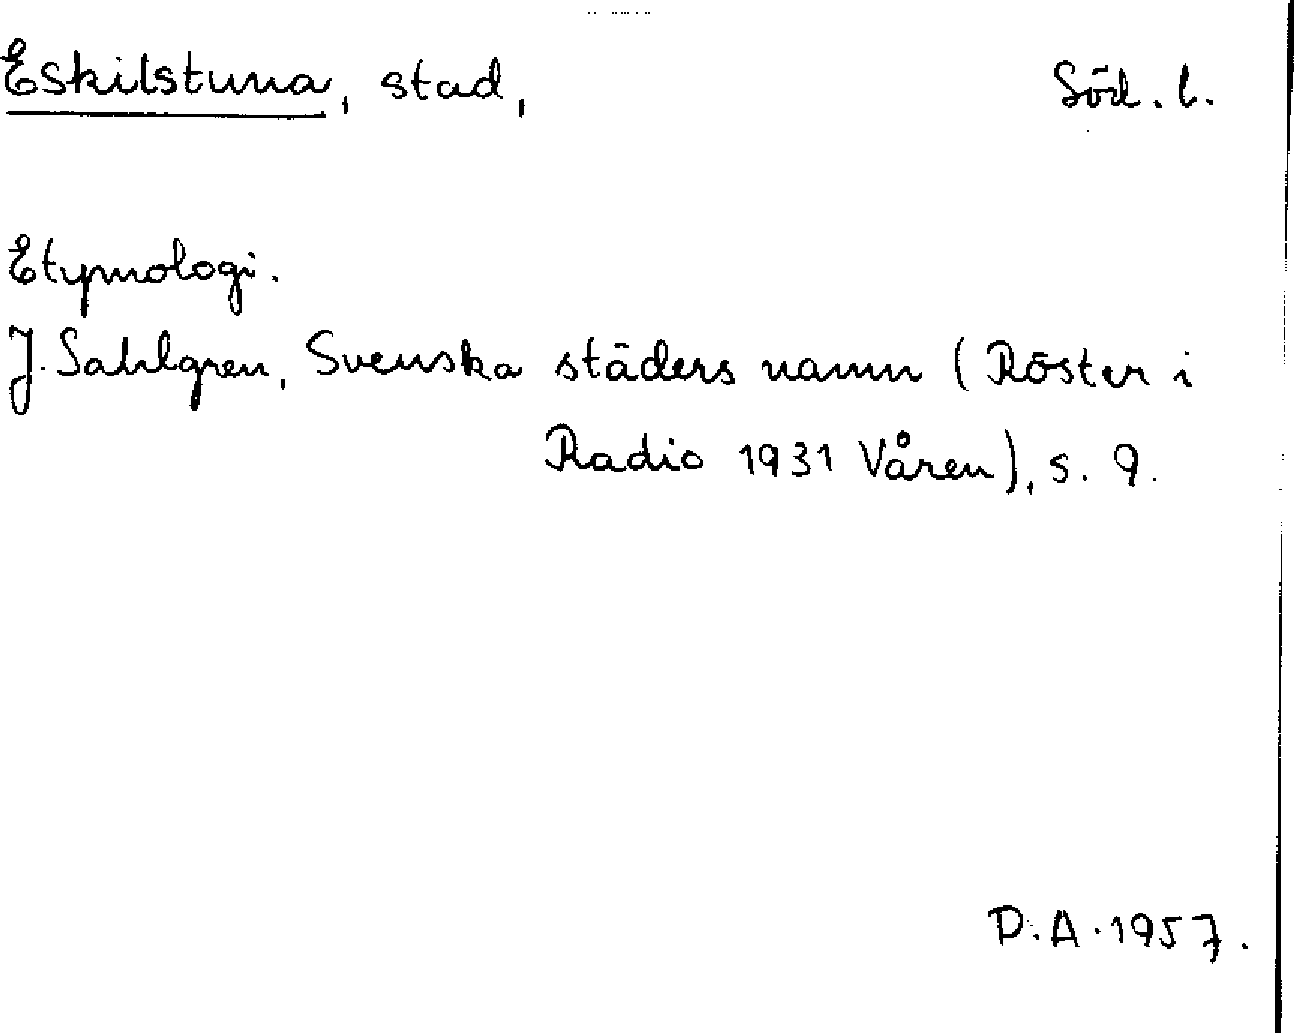 Eskilstuna, stad, Söd. l.
Etymologi.
J. Sahlgren, Svenska städers namn (Röster i
Radio 1931 Våren), s. 9.
D. A. 1957.